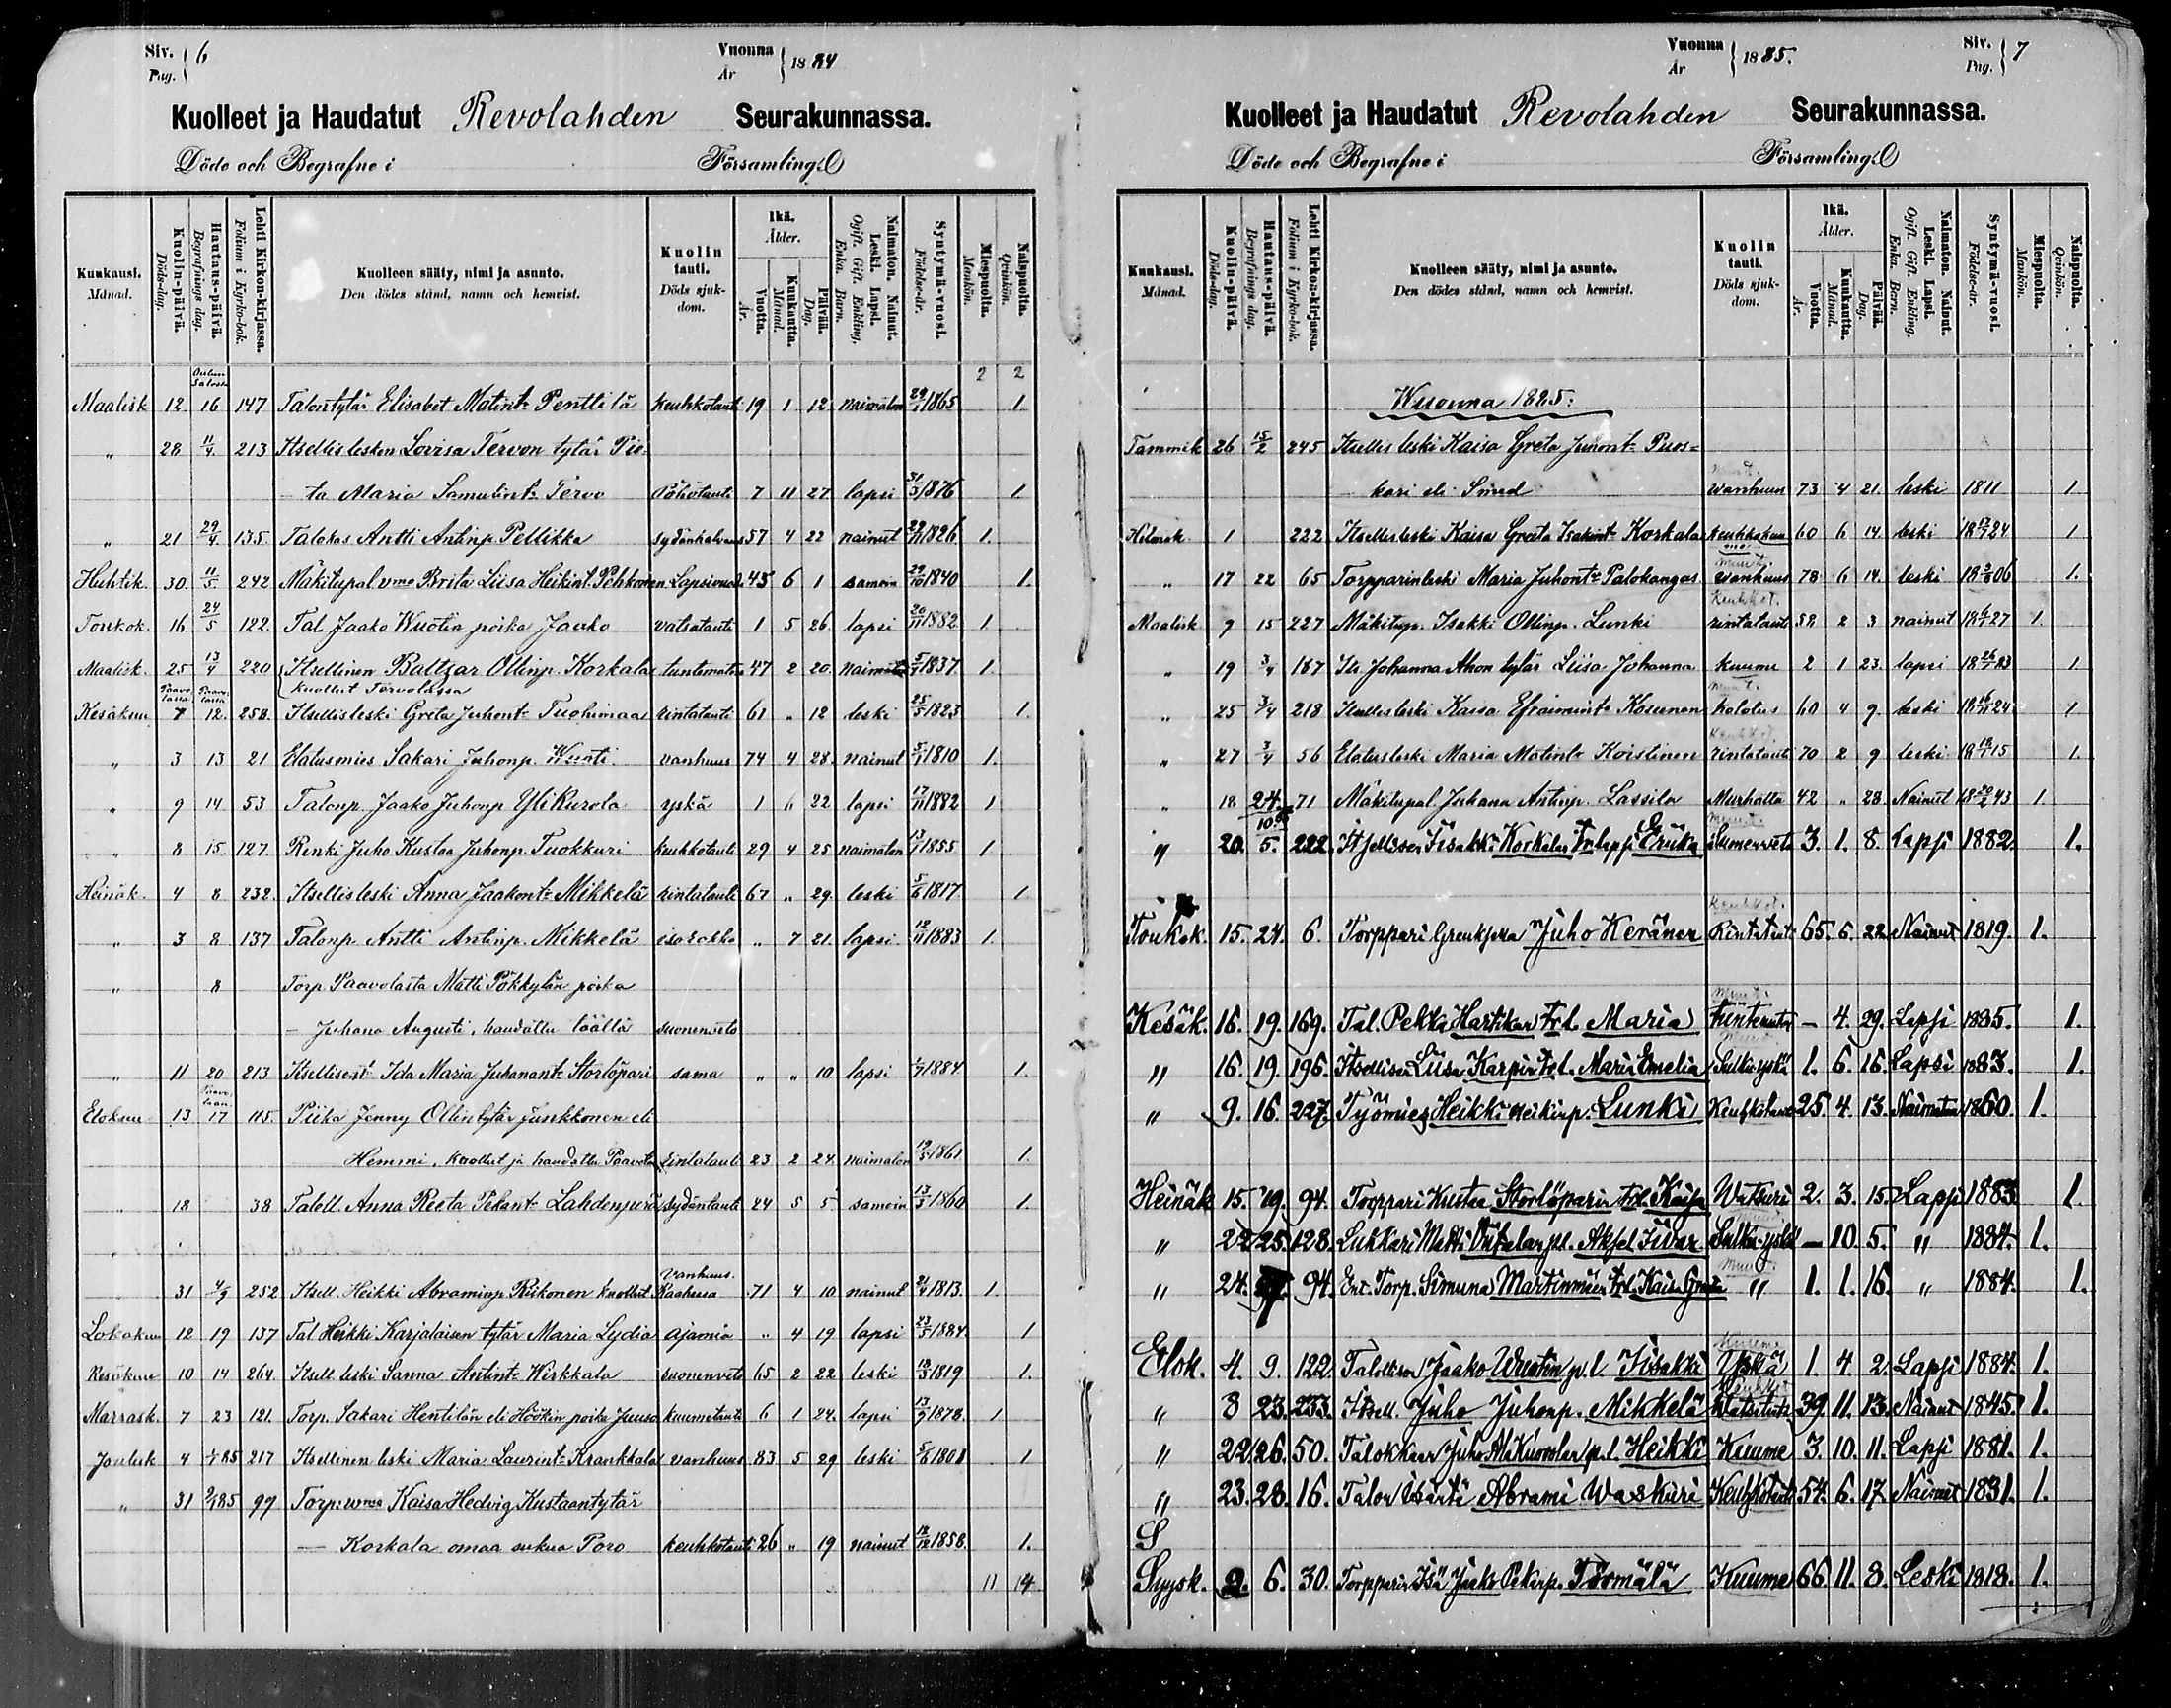 Siv. 6
Pag.
Vuonna 1884
År
Kuolleet ja Haudatut Revolahden Seurakunnassa.
Döde och Begrafne i Församling.
Kuukausi. Månad.
Kuolin-päivä. Döds-dag.
Hautaus-päivä. Begrafnings dag.
Lehti Kirkon-kirjassa. Folium i Kyrko-bok.
Kuolleen sääty, nimi ja asunto.
Den dödes stånd, namn och hemvist.
Kuolin tauti. Döds sjuk-dom.
Ikä. Ålder.
Vuotta. År.
Kuukautta. Månad.
Päivää. Dag.
Naimaton. Nainut. Leski. Lapsi.
Ogift. Gift. Enkling. Enka. Barn.
Syntymä-vuosi. Födelse-år.
Miespuolta. Mankön.
Naispuolta. Qvinkön.
2 2
Maalisk 12 16 147 Talontytär Elisabet Matint: Penttilä keuhkotauti 19 1 12 naimaton 1865 1.
" 28 11/4 213 Itsellislesken Lovisa Tervon tytär Pie-
ta Maria Samulint: Tervo 7 11 27 lapsi 31/3 1876 1
" 21 29/4 135. Talokas Antti Antinp. Pellikka 57 4 22 nainut 29/11 1826 1.
Huhtik. 30. 11/5 242 Mäkitupal. vmo Brita Liisa Heikint. Pehkonen Lapsivuode 43 6 1 samoin 29/10 1840 1.
Toukok. 16 24/5 122. Tal. Jaako Wuotin poika Jaako vatsatauti 1 5 26 lapsi 20/11 1882 1
Maalisk. 25 13/4 220 Itsellinen Baltzar Ollinp. Korkala tuntematon 47 2 20. 5/1 1837. 1.
kuollut Tervolassa
Kesäkuu 7 12. 258. Itsellisleski Greta Juhont: Tuohimaa rintatauti 61 " 12 leski 25/5 1823 1.
" 3 13 21 Elatusmies Sakari Juhonp. Wuoti vanhuus 74 4 28. nainut 5/1 1810 1.
" 9 14 53 Talonp. Jaako Juhonp Yli Kurola yskä 1 6 22 lapsi 17/11 1882 1
" 8 15 127. Renki Juho Kustaa Juhonp. Tuokkuri keuhkotauti 29 4 25 naimaton 13/1 1855 1
Heinäk. 4 8 232. Itsellisleski Anna Jaakont: Mikkelä rintatauti 67 " 29. leski 5/6 1817. 1.
" 3 8 137 Talonp. Antti Antinp. Mikkelä isorokko " 7 21. lapsi 12/11 1883 1.
" 8 Torp. Paavolasta Matti Pökkylän poika
— Juhana Augusti, haudattu täällä suonenveto
" 11 20 213 Itsellisent: Ida Maria Juhanant: Storlöpari sama " " 10 lapsi 1/7 1884 1.
Elokuu 13 17 115. Piika Jenny Ollintytär Junkkonen eli
Hemmi, kuollut ja haudattu Paavola rintatauti 23 2 24 naimaton 19/5 1861 1.
" 18 38 Talell. Anna Reeta Pekant: Lahdenperä sydäntauti 24 5 5 samoin 13/3 1860 1.
31 4/9 252 Itsell. Heikki Abraminp Riikonen kuollut Raahessa vanhuus. 71 4 10 nainut 21/4 1813. 1.
Lokakuu 12 19 137 Tal Heikki Karjalaisen tytär Maria Lydia ajamia " 4 19 lapsi 23/5 1884. 1
Kesäkuu 10 14 264. Itsell. leski Sanna Antint: Wirkkala suonenveto 65 2 22 leski 18/3 1819 1.
Marrask. 7 23 121. Torp. Sakari Hentilän eli Höökin poika Juuso kuumetauti 6 1 24. lapsi 13/9 1878. 1
Jouluk 4 1/1 85 217 Itsellinen leski Maria Laurint: Krankkala vanhuus 83 5 29 leski 5/6 1801 1
" 31 2/1 85 99 Torp: wmo Kaisa Hedvig Kustaantytär
— Korkala omaa sukua Poro keuhkotauti 26 " 19 nainut 12/12 1858. 1.
11 14
Vuonna 1885.
År
Siv. 7
Pag.
Kuolleet ja Haudatut Revolahden Seurakunnassa.
Döde och Begrafne i Församling.
Kuukausi. Månad.
Kuolin-päivä. Döds-dag.
Hautaus-päivä. Begrafnings dag.
Lehti Kirkon-kirjassa. Folium i Kyrko-bok.
Kuolleen sääty, nimi ja asunto.
Den dödes stånd, namn och hemvist.
Kuolin tauti. Döds sjuk-dom.
Ikä. Ålder.
Vuotta. År.
Kuukautta. Månad.
Päivää. Dag.
Naimaton. Nainut. Leski. Lapsi.
Ogift. Gift. Enkling. Enka. Barn.
Syntymä-vuosi. Födelse-år.
Miespuolta. Mankön.
Naispuolta. Qvinkön.
Wuonna 1885:
Tammik 26 15/2 245 Itsellis leski Kaisa Greta Juhont: Puos=
kari eli Smed wanhuus 73 4 21. leski 1811 1
Helmik. 1 222 Itsellisleski Kaisa Greta Isakint: Korkala 60 6 14. leski 1824 1
" 17 22 65 Torpparinleski Maria Juhont: Palokangas wanhuus 78 6 14. leski 1806 1.
Maalisk 9 15 227 Mäkitup. Isakki Ollinp. Lunki rintatauti 58 2 3 nainut 1827 1.
" 19 3/4 187 Its. Johanna Ahon tytär Liisa Johanna kuume 2 1 23. lapsi 1883 1
" 25 3/4 218 Itsellisleski Kaisa Efraimint: Kosunen kolotus 60 4 9. leski 1824. 1
" 27 3/4 56 Elatusleski Maria Matint: Koistinen rintatauti 70 2 9 leski 1815 1.
" 18 24 71 Mäkitupal. Juhana Antinp. Lassila Murhattu 42 " 28 Nainut 1843 1.
" 20. 10./5. 222. Itsellisen Iisakki Korkalan tr. lapsi Erika Suonenveto 3. 1. 8. Lapsi 1882. 1.
Toukok. 15. 24. 6. Torppari Juho Keränen Rintataut 65. 6. 22. Nainut 1819. 1.
Kesäk. 16. 19. 169. Tal. Pekka Hartikan tr. l. Maria tuntematon — 4. 29. Lapsi 1885. 1.
" 16. 19. 196. Itsellisen Liisa Karpin tr. l. Maria Emelia 1. 6. 16. Lapsi 1883. 1.
" 9. 16. 227. Työmies Heikki Heikinp. Lunki Keuhkotauti 25. 4. 13. Naimaton 1860. 1.
Heinäk 15. 19. 94. Torppari Kustaa Storlöparin tr. l. Kaisa 2. 3. 15. Lapsi 1883 1.
" 22. 25. 128. Lukkari Matti pl. Aksel Iivar — 10. 5. " 1884. 1.
" 24. 94. Ent. Torp. Simuna Martinmäen tr. l. Kaisa Greta " 1. 1. 16. " 1884. 1.
Elok. 4. 9. 122. Talollisen Jaako Wuotin p. l. Iisakki Yskä 1. 4. 2. Lapsi 1884. 1.
" 3 23. 233. Itsell. Juho Juhonp. Mikkelä Vatsatauti 39. 11. 13. Nainut 1845. 1.
" 22. 26. 50. Talokkaan Juho AliKurolan p. l. Heikki Kuume 3. 10. 11. Lapsi 1881. 1.
" 23. 28. 16. Talon Isäntä Abrami Waskuri Keuhkotauti 54. 6. 17. Nainut 1831. 1.
S
Syysk. 2. 6. 30. Torpparin Isä Jaako Pekanp. Törmälä Kuume 66. 11. 8. Leski 1818. 1.